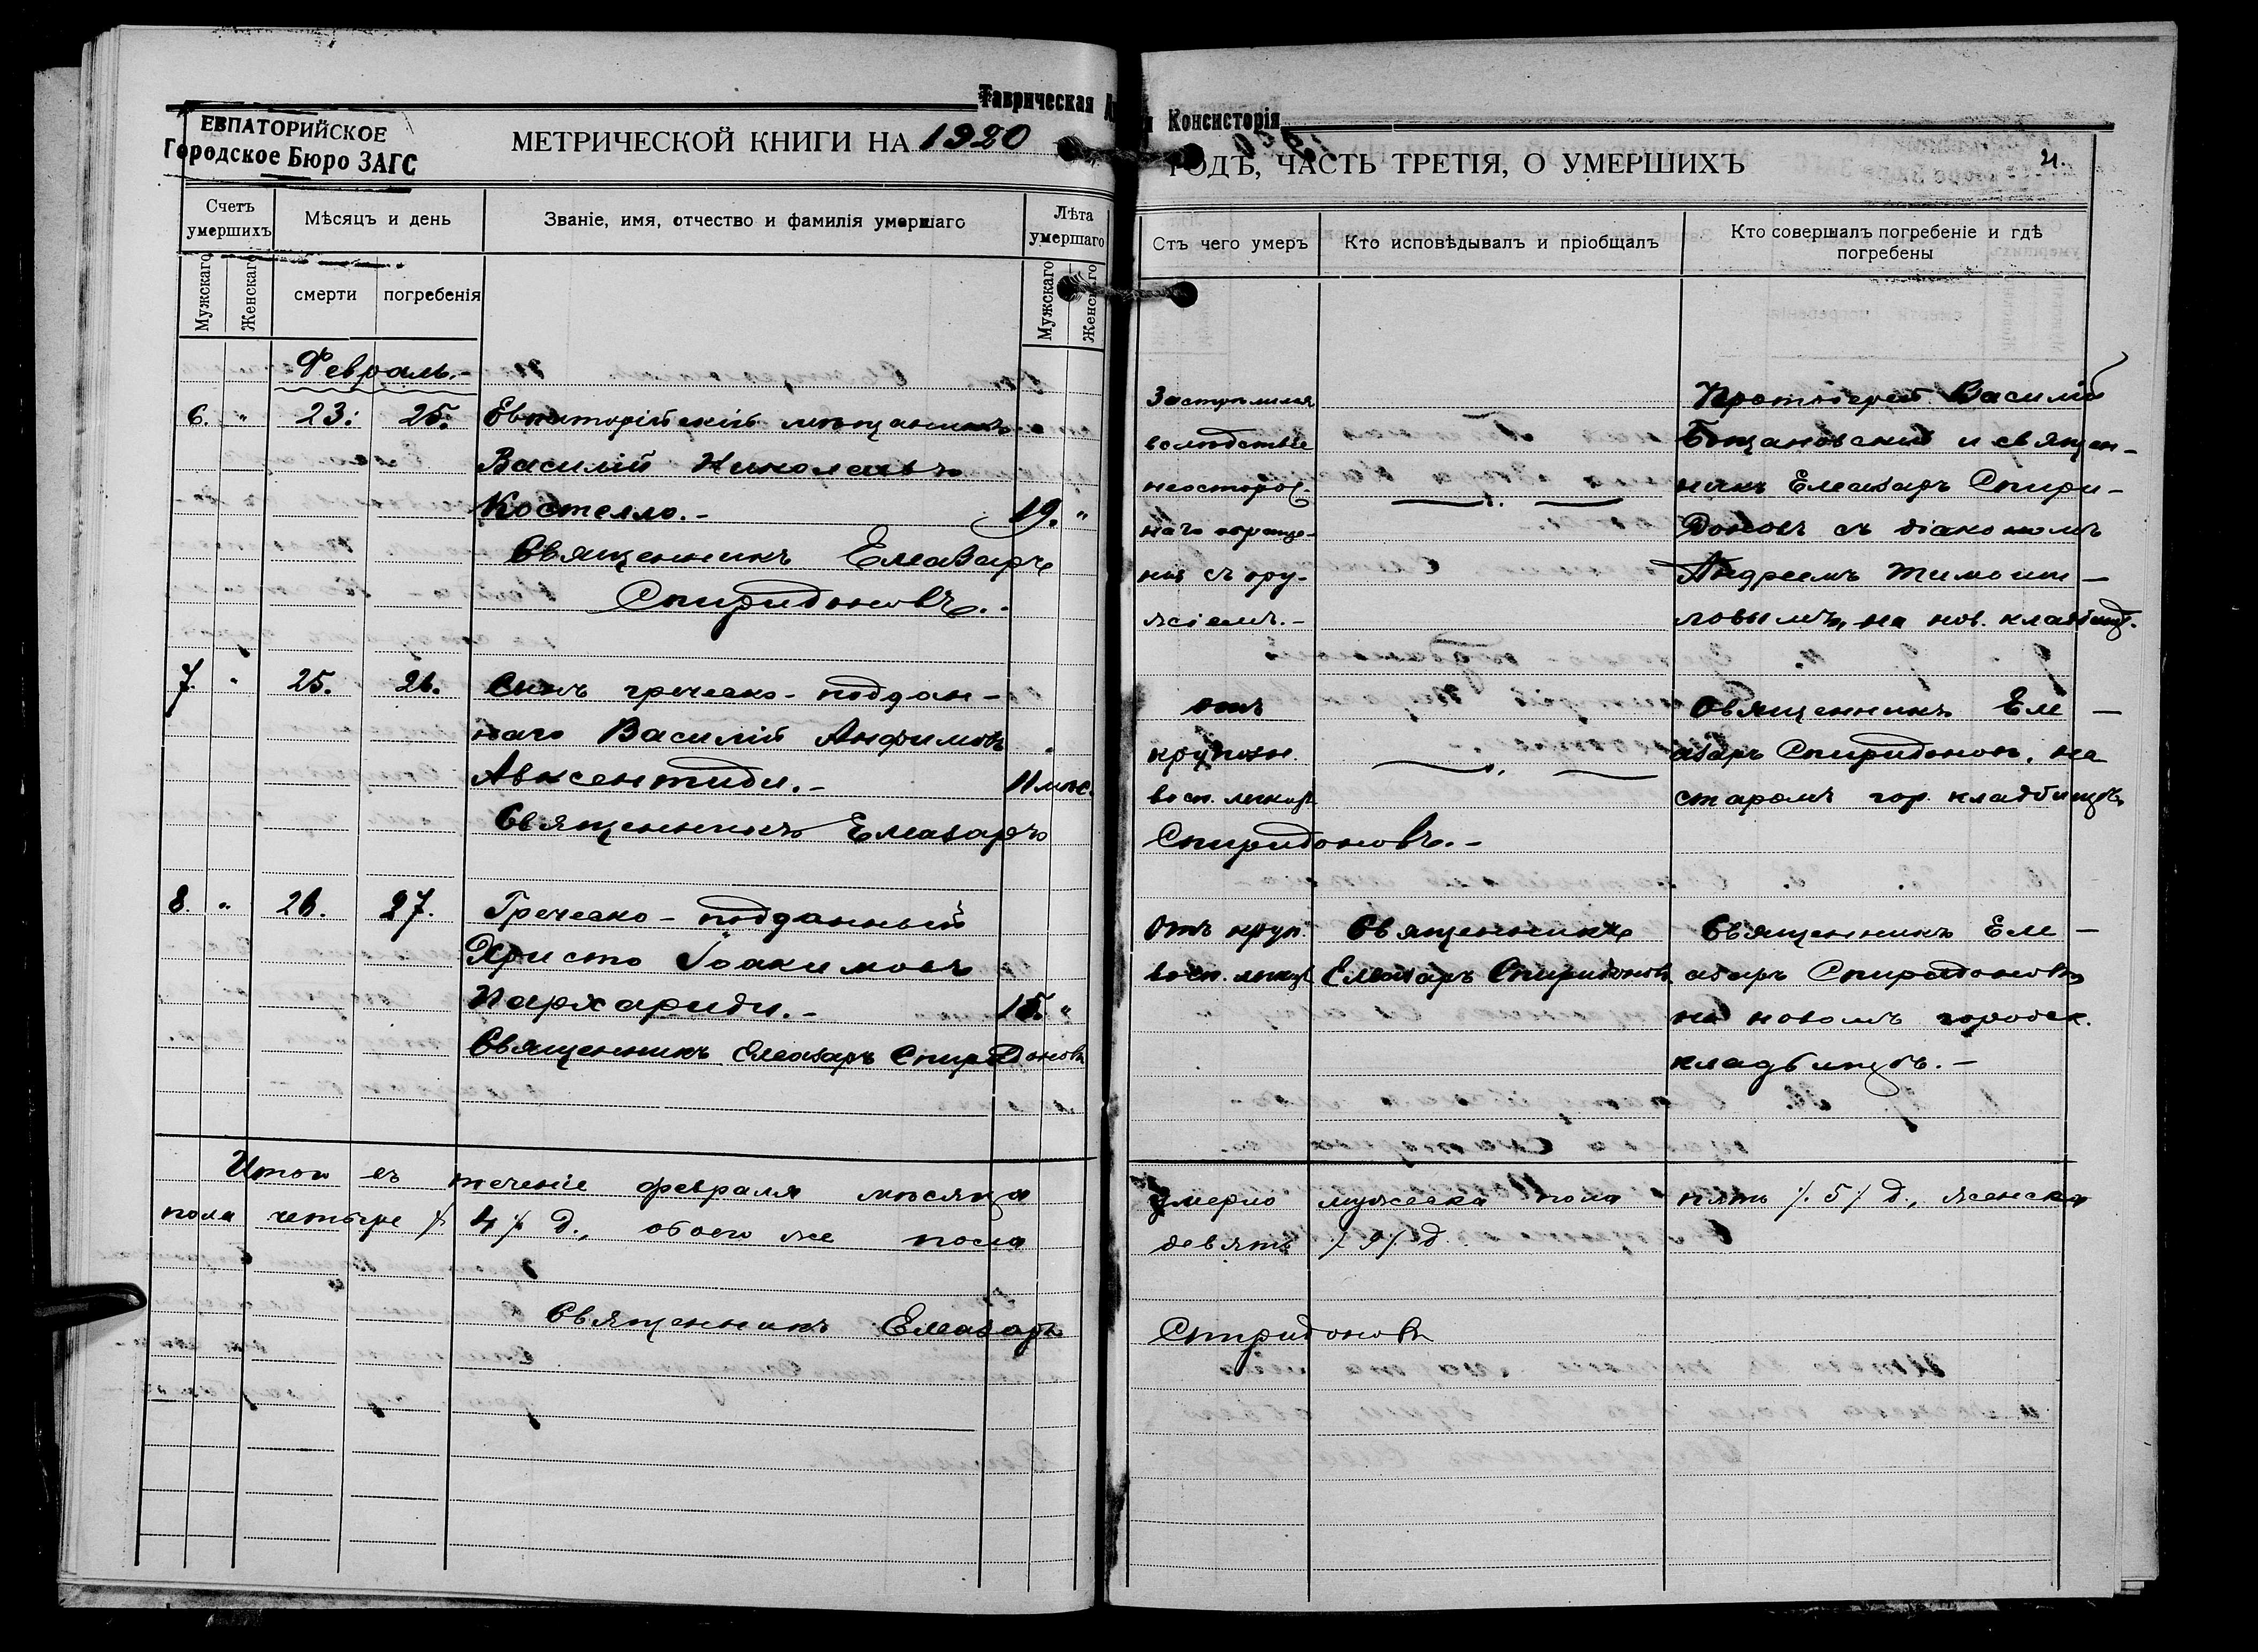 Таврическая
Консисторія
ЕВПАТОРИЙСКОЕ
Городское Бюро ЗАГС
МЕТРИЧЕСКОЙ КНИГИ НА 1920
ГОДЪ, ЧАСТЬ ТРЕТІЯ, О УМЕРШИХЪ
Счетъ умершихъ
Мѣсяцъ и день
Званіе, имя, отчество и фамилія умершаго
Лѣта умершаго
Мужскаго
Женскаго
смерти
погребенія
Мужскаго
Женскаго
Отъ чего умеръ
Кто исповѣдывалъ и пріобщалъ
Кто совершалъ погребеніе и гдѣ
погребены
Февраль.-
6. " 23. 25. Евпаторійскій мѣщанинъ
Василій Николаевъ
Костелло.- 19. "
Священникъ Елеазаръ
Спиридоновъ.-
Застрѣлился
вслѣдствіе
неосторож-
наго обраще-
нія съ ору-
жіемъ.-
Протоіерей Василій
Бощановскій и священ-
никъ Елеазаръ Спири-
доновъ съ діакономъ
Андреемъ Тимоши-
ловымъ, на нов. кладбищѣ.
7. " 25. 26. Сынъ греческо-поддан-
наго Василій Анфимовъ
Авксентиди.- 11 мѣс.
Священникъ Елеазаръ
Спиридоновъ.-
отъ
крупозн.
восп. легкихъ
Священникъ Еле-
азаръ Спиридоновъ, на
старомъ гор. кладбищѣ
8. " 26. 27. Греческо-подданный
Христо Іоакимовъ
Пархариди.- 15. "
Священникъ Елеазаръ Спиридоновъ
Отъ круп.
восп. легкихъ
Священникъ
Елеазаръ Спиридоновъ
Священникъ Еле-
азаръ Спиридоновъ
на новомъ городск.
кладбищѣ.-
Итого въ теченіе февраля мѣсяца умерло мужеска пола пять /5/ д., женска
пола четыре /4/ д., обоего же пола девять /9/ д.
Священникъ Елеазаръ Спиридоновъ